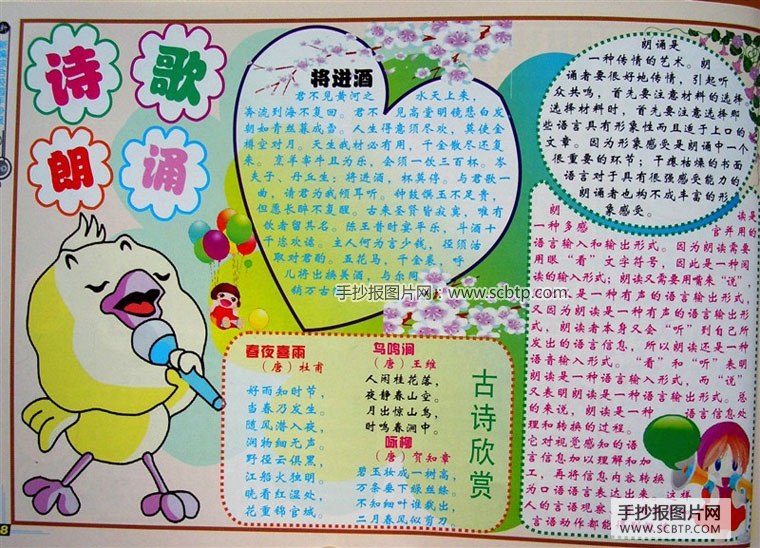 诗歌
朗诵
将进酒
君不见黄河之 水天上来，
奔流到海不复回。君不 见高堂明镜悲白发
朝如青丝暮成雪。人生得意须尽欢，莫使金
樽空对月。天生我材必有用，千金散尽还复
来。烹羊宰牛且为乐，会须一饮三百杯。岑
夫子，丹丘生；将进酒，杯莫停。与君歌一
曲，请君为我倾耳听。钟鼓馔玉不足贵，
但愿长醉不复醒。古来圣贤皆寂寞，唯有
饮者留其名。陈王昔时宴平乐，斗酒十
千恣欢谑。主人何为言少钱，径须沽
取对君酌。五花马，千金裘，呼
儿将出换美酒，与尔同
销万古
手抄报图片网：www.scbtp.com
朗诵是
一种传情的艺术。朗
诵者要很好地传情，引起听
众共鸣，首先要注意材料的选择
选择材料时，首先要注意选择那
些语言具有形象性而且适于上口的
文章。因为形象感受是朗诵中一个
很重要的环节；干瘪枯燥的书面
语言对于具有很强感受能力的
朗诵者也构不成丰富的形
象感受。
朗 读是
一种多感 官并用的
语言输入和输出形式。因为朗读需要
用眼“看”文字符号，因此是一种阅
读的输入形式；朗读又需要用嘴来“说”
是一种有声的语言输出形式，
又因为朗读是一种有声的语言输出形
式，朗读者本身又会“听”到自己所
发出的语言信息，所以朗读还是一种
语音输入形式。“看”和“听”表明
朗读是一种语言输入形式，而“说”
又表明朗读是一种语言输出形式。总
的来说，朗读是一种 语言信息处
理和转换的过程。
它对视觉感知的语
言信息加以理解和加
工，再将信息内容转换
为口语语言表达出来，这样
人的言语观察
言语动作都能
春夜喜雨
（唐）杜甫
好雨知时节，
当春乃发生。
随风潜入夜，
润物细无声。
野径云俱黑，
江船火独明。
晓看红湿处，
花重锦官城。
鸟鸣涧
（唐）王维
人闲桂花落，
夜静春山空。
月出惊山鸟，
时鸣春涧中。
咏柳
（唐）贺知章
碧玉妆成一树高，
万条垂下绿丝绦。
不知细叶谁裁出，
二月春风似剪刀。
古诗欣赏
手抄报图片网
WWW.SCBTP.COM